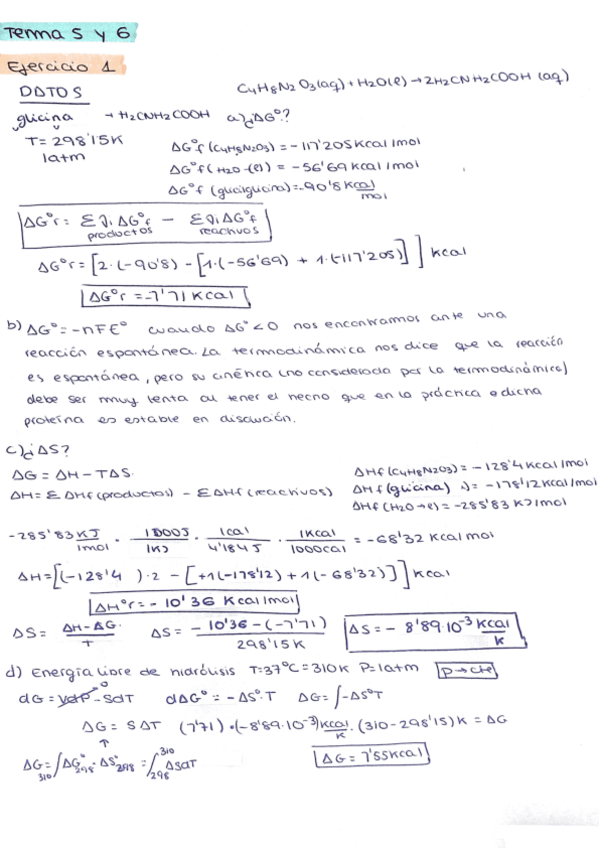 Tema 5 y 6
Ejercicio 1
C4H8N2O3(aq) + H2O(l) → 2H2CNH2COOH (aq)
DATOS
glicina → H2CNH2COOH a)¿ΔG°?
T= 298'15K
1atm
ΔG°f (C4H8N2O3) = -117'205 Kcal/mol
ΔG°f (H2O (l)) = -56'69 Kcal/mol
ΔG°f (glicilglicina) = -90'8 Kcal/mol
ΔG°r = Σ ϑi ΔG°f productos - Σ ϑi ΔG°f reactivos
ΔG°r = [2·(-90'8) - [1·(-56'69) + 1·(-117'205)]] Kcal
ΔG°r = -7'71 Kcal
b) ΔG° = -nFE° cuando ΔG° < 0 nos encontramos ante una
reacción espontánea. La termodinámica nos dice que la reacción
es espontánea, pero su cinética (no considerada por la termodinámica)
debe ser muy lenta al tener el hecho que en la práctica dicha
proteína es estable en disolución.
c)¿ΔS?
ΔG = ΔH - TΔS.
ΔH = Σ ΔHf (productos) - Σ ΔHf (reactivos)
ΔHf (C4H8N2O3) = -128'4 Kcal/mol
ΔHf (glicina) = -178'12 Kcal/mol
ΔHf (H2O → l) = -285'83 KJ/mol
-285'83 KJ/1mol · 1000J/1KJ · 1cal/4'184J · 1Kcal/1000cal = -68'32 Kcal mol
ΔH = [(-128'4 )·2 - [+1(-178'12) + 1(-68'32)]] Kcal
ΔH°r = -10'36 Kcal/mol
ΔS = ΔH-ΔG/T ΔS = -10'36-(-7'71)/298'15K ΔS = -8'89·10-3 Kcal/K
d) Energía libre de hidrólisis T=37°C=310K P=1atm P→cte
dG = VdP - SdT dΔG° = -ΔS°·T ΔG = ∫-ΔS°T
ΔG = SΔT (7'71)·(-8'89·10-3) Kcal/K · (310-298'15)K = ΔG
ΔG310 = ∫ΔG°298 · ΔS°298 = ∫298 310 ΔSdT
ΔG = 7'55Kcal